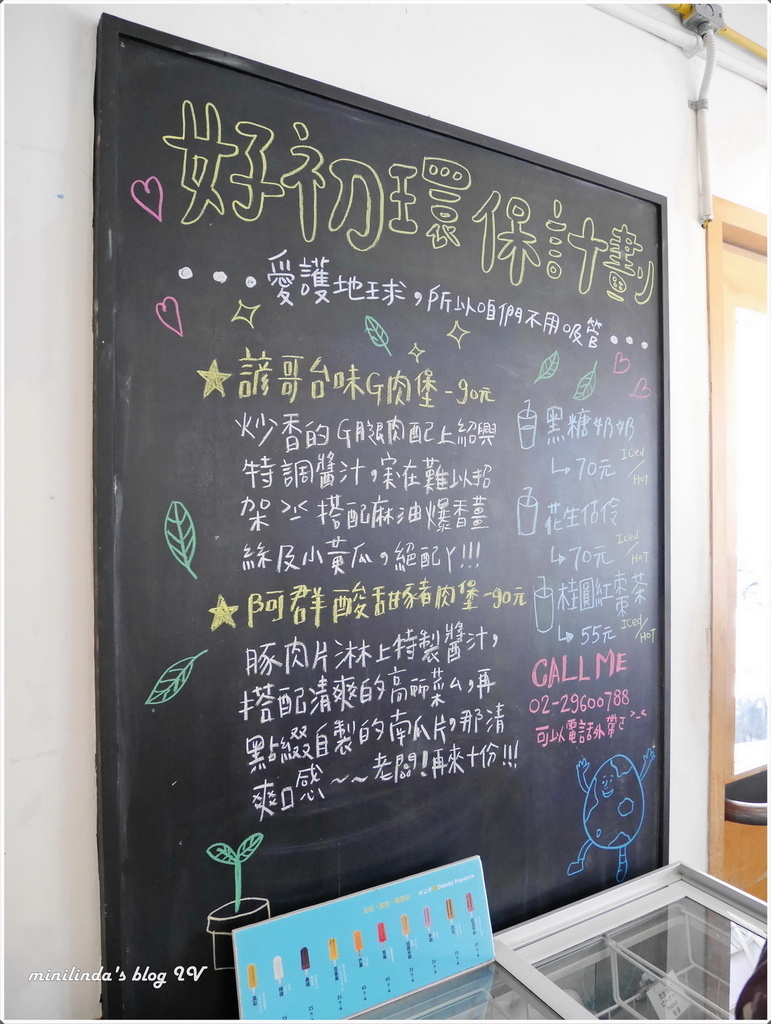 好初環保計劃
....愛護地球，所以咱們不用吸管...
★諺哥台味G肉堡-90元
炒香的G腿肉配上紹興
特調醬汁，実在難以招
架>.<搭配麻油爆香薑
絲及小黃瓜，絕配ㄚ!!!
★阿群酸甜豬肉堡-90元
豚肉片淋上特製醬汁，
搭配清爽的高麗菜ㄙ，再
點綴自製的南瓜片，那清
爽口感~~老闆!再來十份!!!
黑糖奶奶
↳70元 Iced/HOT
花生佶伶
↳70元 Iced/HOT
桂圓紅棗茶
↳55元 Iced/HOT
CALL ME
02-29600788
可以電話外帶ㄛ>.<
minilinda's blog IV